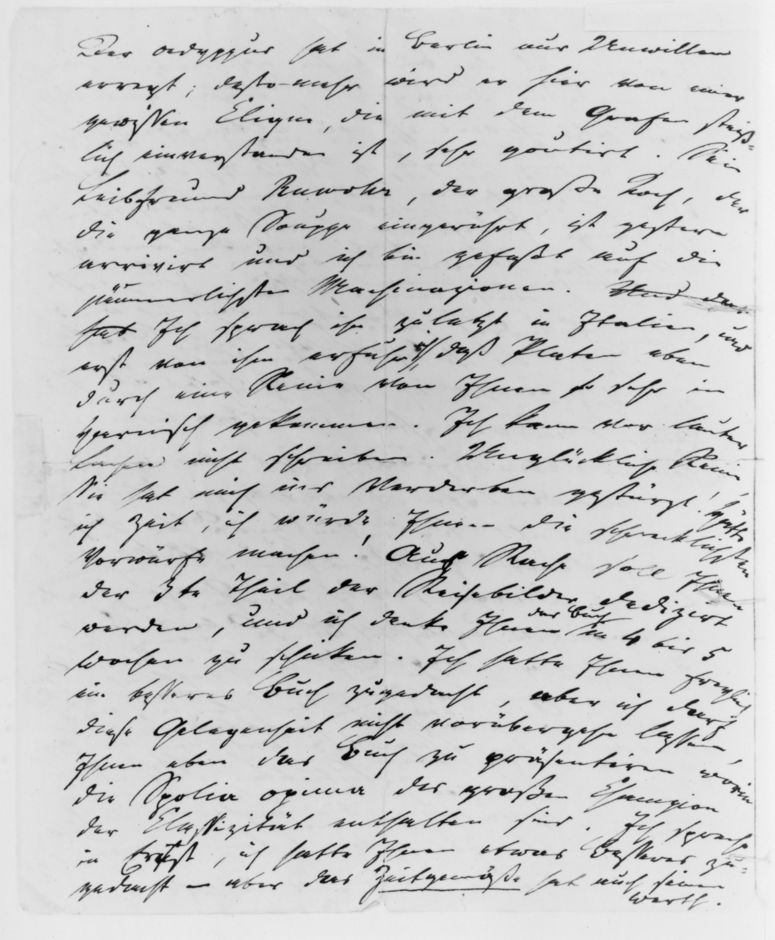 Der Oedyppus hat in Berlin nur Unwillen
erregt; desto mehr wird er hier von einer
gewissen Clique, die mit dem Grafen steiß-
lich einverstanden ist, sehr goutirt. Sein
Leibfreund Rumohr, der große Koch, der
die ganze Souppe eingerührt, ist gestern
arrivirt und ich bin gefaßt auf die
jämmerlichsten Machinazionen. Und das
hat Ich sprach ihn zuletzt in Italien, und
erst von ihm erfuhr ich, daß Platen eben
durch eine Xenie von Ihnen so sehr in
Harnisch gekommen. Ich kann vor lauter
Lachen nicht schreiben. Unglückliche Xenie,
Sie hat mich ins Verderben gestürzt! Hätte
ich Zeit, ich würde Ihnen die schrecklichsten
Vorwürfe machen! Aus Rache soll Ihnen
der 3te Theil der Reisebilder dedizirt
werden, und ich denke Ihnen das Buch in 4 bis 5
Wochen zu schicken. Ich hatte Ihnen freylich
ein besseres Buch zugedacht, aber ich darf
diese Gelegenheit nicht vorübergehn lassen,
Ihnen eben das Buch zu präsentiren worin
die Spolia opima des großen Champion
der Classizität enthalten sind. Ich spreche
im Ernst, ich hatte Ihnen etwas Besseres zu-
gedacht – aber das Zeitgemäße hat auch seinen
Werth.